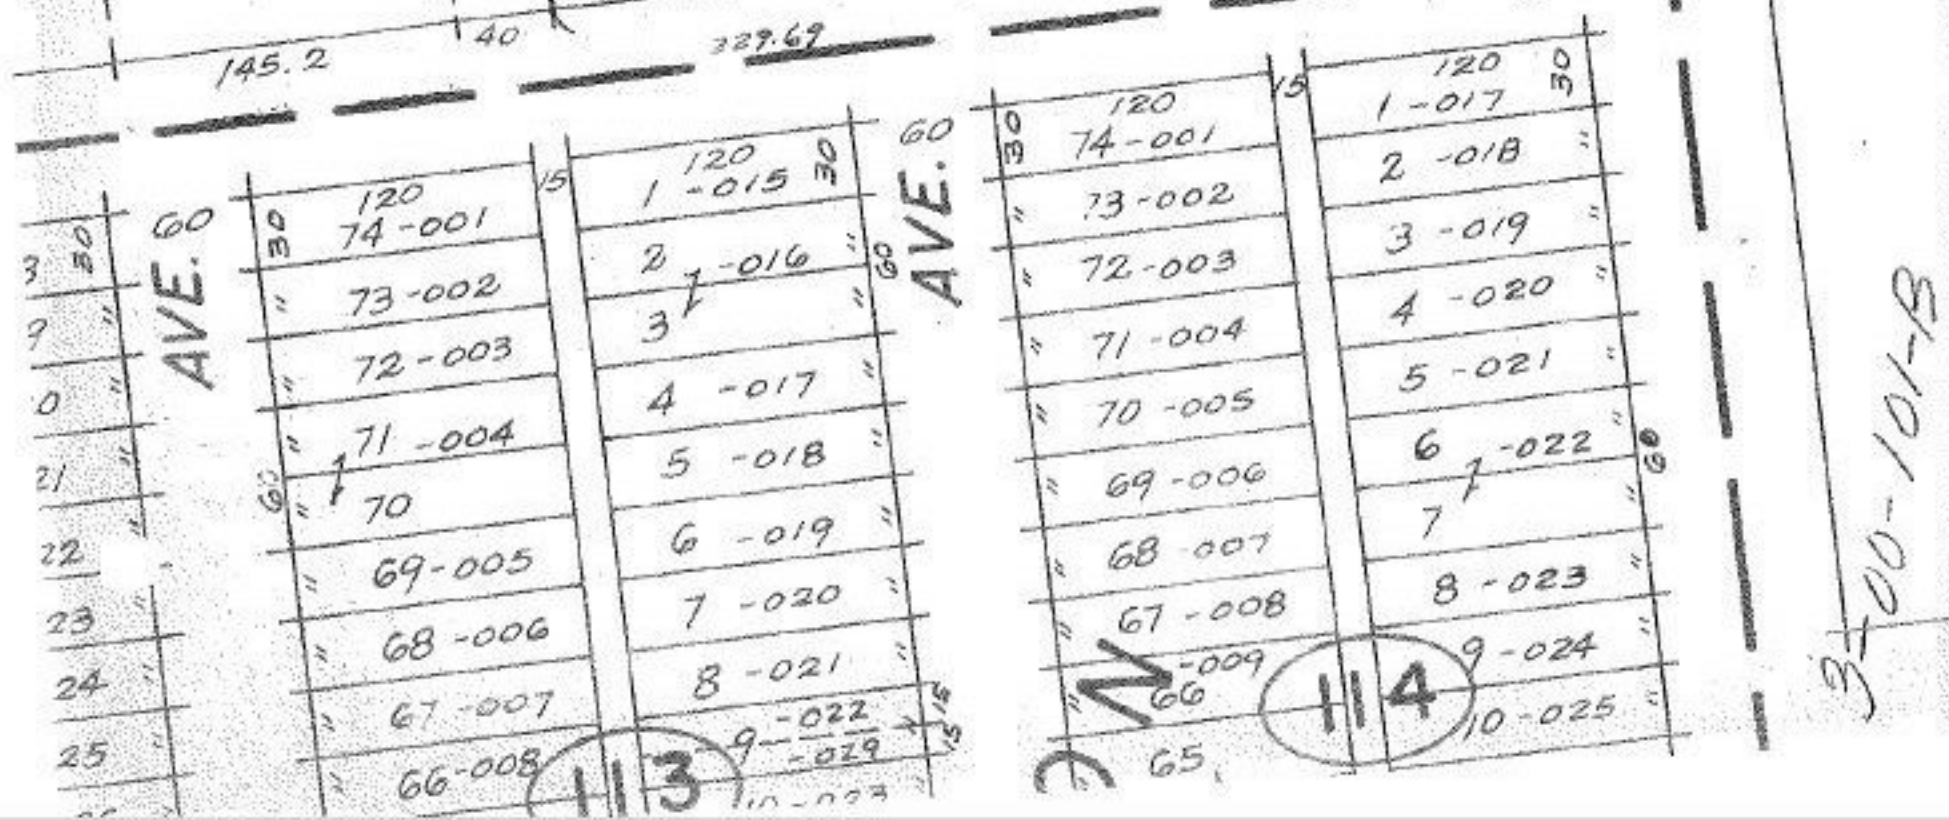 145.2
40
229.69
60
AVE.
30
120
74-001
73-002
72-003
71-004
70
60
69-005
68-006
67-007
66-008
15
120
30
1-015
2-016
3
60
4-017
5-018
6-019
7-020
8-021
9-022
-029
15
15
10-023
113
60
AVE.
30
120
74-001
73-002
72-003
71-004
70-005
69-006
68-007
67-008
-009
66
65
N
15
120
30
1-017
2-018
3-019
4-020
5-021
6-022
60
7
8-023
9-024
10-025
114
3-00-101-B
30
22
23
24
25